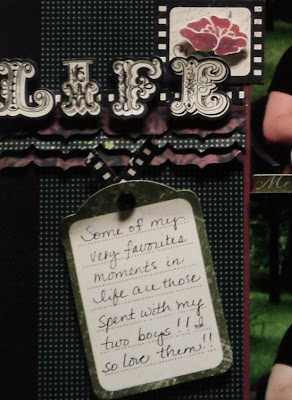 LIFE
Some of my
very favorites
moments in
life are those
Spent with my
two boys!! I
so love them!!